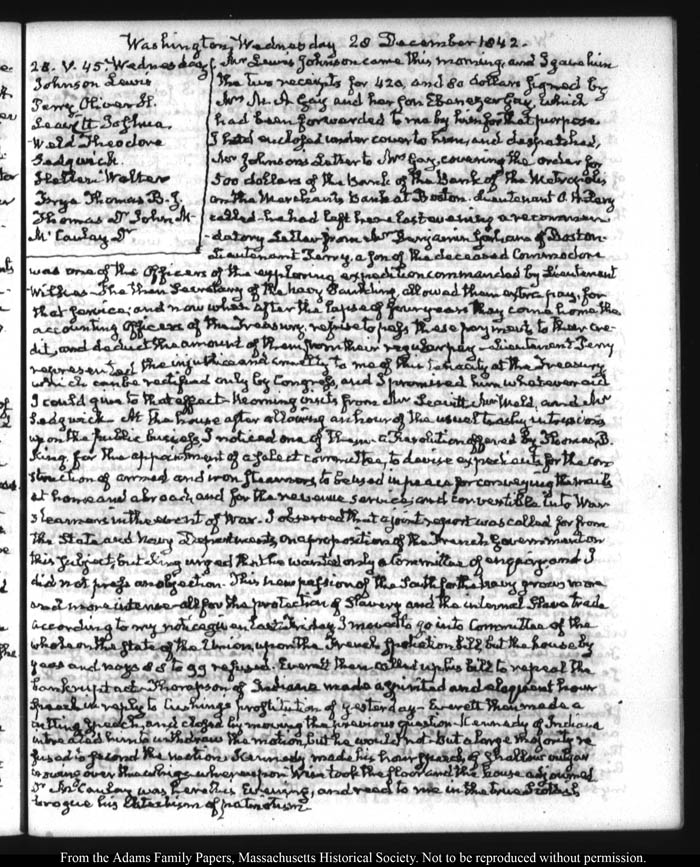 Washington, Wednesday 28 December 1842.
28. V. 45. Wednesday
Johnson Lewis
Perry Oliver H.
Leavitt Joshua.
Weld Theodore
Sedgwick.
Walter
Frye Thomas B. J.
Thomas Dr John M.
McCaulay Dr
Mr Lewis Johnson came this morning, and I gave him
the two receipts for 420, and 80 dollars signed by
Mrs M. A. Gay and her son Ebenezer Gay, which
had been forwarded to me by him for that purpose
I had enclosed under cover to him, and despatched,
Mr Johnson's Letter to Mrs Gay, covering the order for
500 dollars of the Bank of the Bank of the Metropolis
on the Merchants Bank at Boston. Lieutenant O. H. Perry
called he had left here last evening a recommen-
datory Letter from Mr Benjamin of Boston.
Lieutenant Perry, a son of the deceased Commodore
was one of the Officers of the exploring expedition commanded by Lieutenant
Wilkes. The then Secretary of the Navy Paulding, allowed them extra pay, for
that service; and now when after the lapse of four years they come home the
accounting Officers of the Treasury, refuse to pass these payments to their cre-
dit, and deduct the amount of them from their regular pay. Lieutenant Perry
represented the injustice and cruelty to me of this tenacity at the Treasury
which can be rectified only by Congress, and I promised him whatever aid
I could give to that effect. Morning visits from Mr Leavitt Mr Weld, and Mr
Sedgwick. At the house after allowing an hour of the usual trashy intrusions
upon the public business, I noticed one of them. a Resolution offered by Thomas B.
King, for the appointment of a select committee, to devise expedients for the con-
struction of armed and iron steamers, to be used in peace for conveying the mails
at home and abroad, and for the revenue service; and convertible into War
steamers in the event of War. I observed that a joint report was called for from
the State and Navy Departments, on a proposition of the French Government on
this subject; but King urged that he wanted only a Committee of enquiry and I
did not press an objection. This new passion of the South for the Navy grows more
and more intense all for the protection of Slavery and the internal Slave trade
according to my notice given last Friday, I moved to go into Committee of the
whole on the State of the Union, upon the French Spoliation bill, but the house by
yeas and nays 85 to 99 refused. Everett then called up his bill to repeal the
bankrupt act. Thompson of Indiana made a spirited and eloquent hour
speech in reply to Cushing's prostitution of yesterday. Everett then made a
cutting speech, and closed by moving the previous question. Kennedy of Indiana
intreated him to withdraw the motion, but he would not. But a large majority re
fused to second the motion. Kennedy made his hour speech of shallow vulgar
over the whigs whereupon Wise took the floor and the house adjourned
Dr McCaulay was here this Evening, and read to me in the true Scotch
brogue his Catechism of patriotism
From the Adams Family Papers, Massachusetts Historical Society. Not to be reproduced without permission.